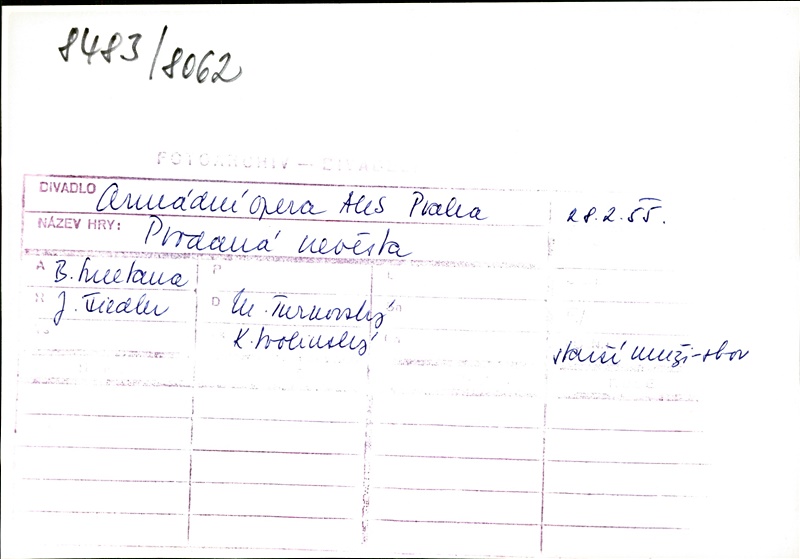 8483/8062
FOTOARCHIV —
DIVADLO Armádní opera AUS Praha 28.2.55.
NÁZEV HRY: Prodaná nevěsta
A B. Smetana P
J. Fiedler D M. Turnovský
K. Wolinský
starší muži-sbor